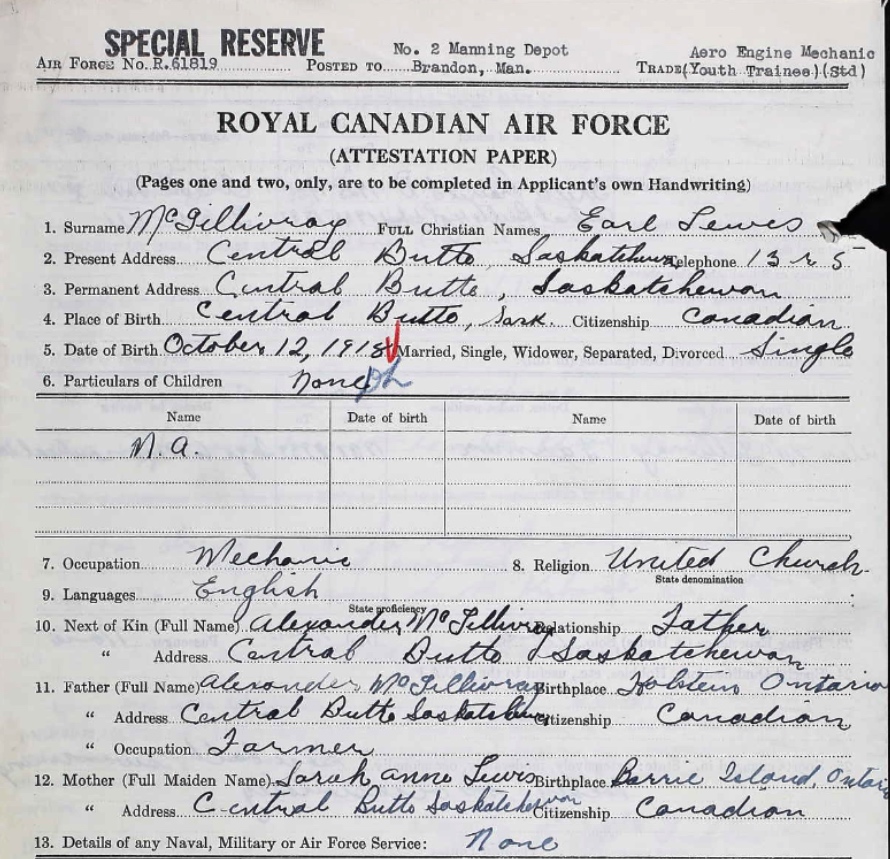 SPECIAL RESERVE
No. 2 Manning Depot
Aero Engine Mechanic
AIR FORCE No. R.61819 POSTED TO Brandon, Man. TRADE (Youth Trainee) (Std)
ROYAL CANADIAN AIR FORCE
(ATTESTATION PAPER)
(Pages one and two, only, are to be completed in Applicant's own Handwriting)
1. Surname McGillivray FULL Christian Names Earl Lewis
2. Present Address Central Butte, Saskatchewan Telephone 13 r 5
3. Permanent Address Central Butte, Saskatchewan
4. Place of Birth Central Butte, Sask. Citizenship Canadian
5. Date of Birth October 12, 1918 Married, Single, Widower, Separated, Divorced Single
6. Particulars of Children None
Name Date of birth Name Date of birth
N.a.
7. Occupation Mechanic 8. Religion United Church
State denomination
9. Languages English
State proficiency
10. Next of Kin (Full Name) Alexander McGillivray Relationship Father
" Address Central Butte Saskatchewan
11. Father (Full Name) Alexander McGillivray Birthplace Holstein Ontario
" Address Central Butte Saskatchewan Citizenship Canadian
" Occupation Farmer
12. Mother (Full Maiden Name) Sarah Anne Lewis Birthplace Barrie Island, Ontario
" Address Central Butte Saskatchewan Citizenship Canadian
13. Details of any Naval, Military or Air Force Service: None